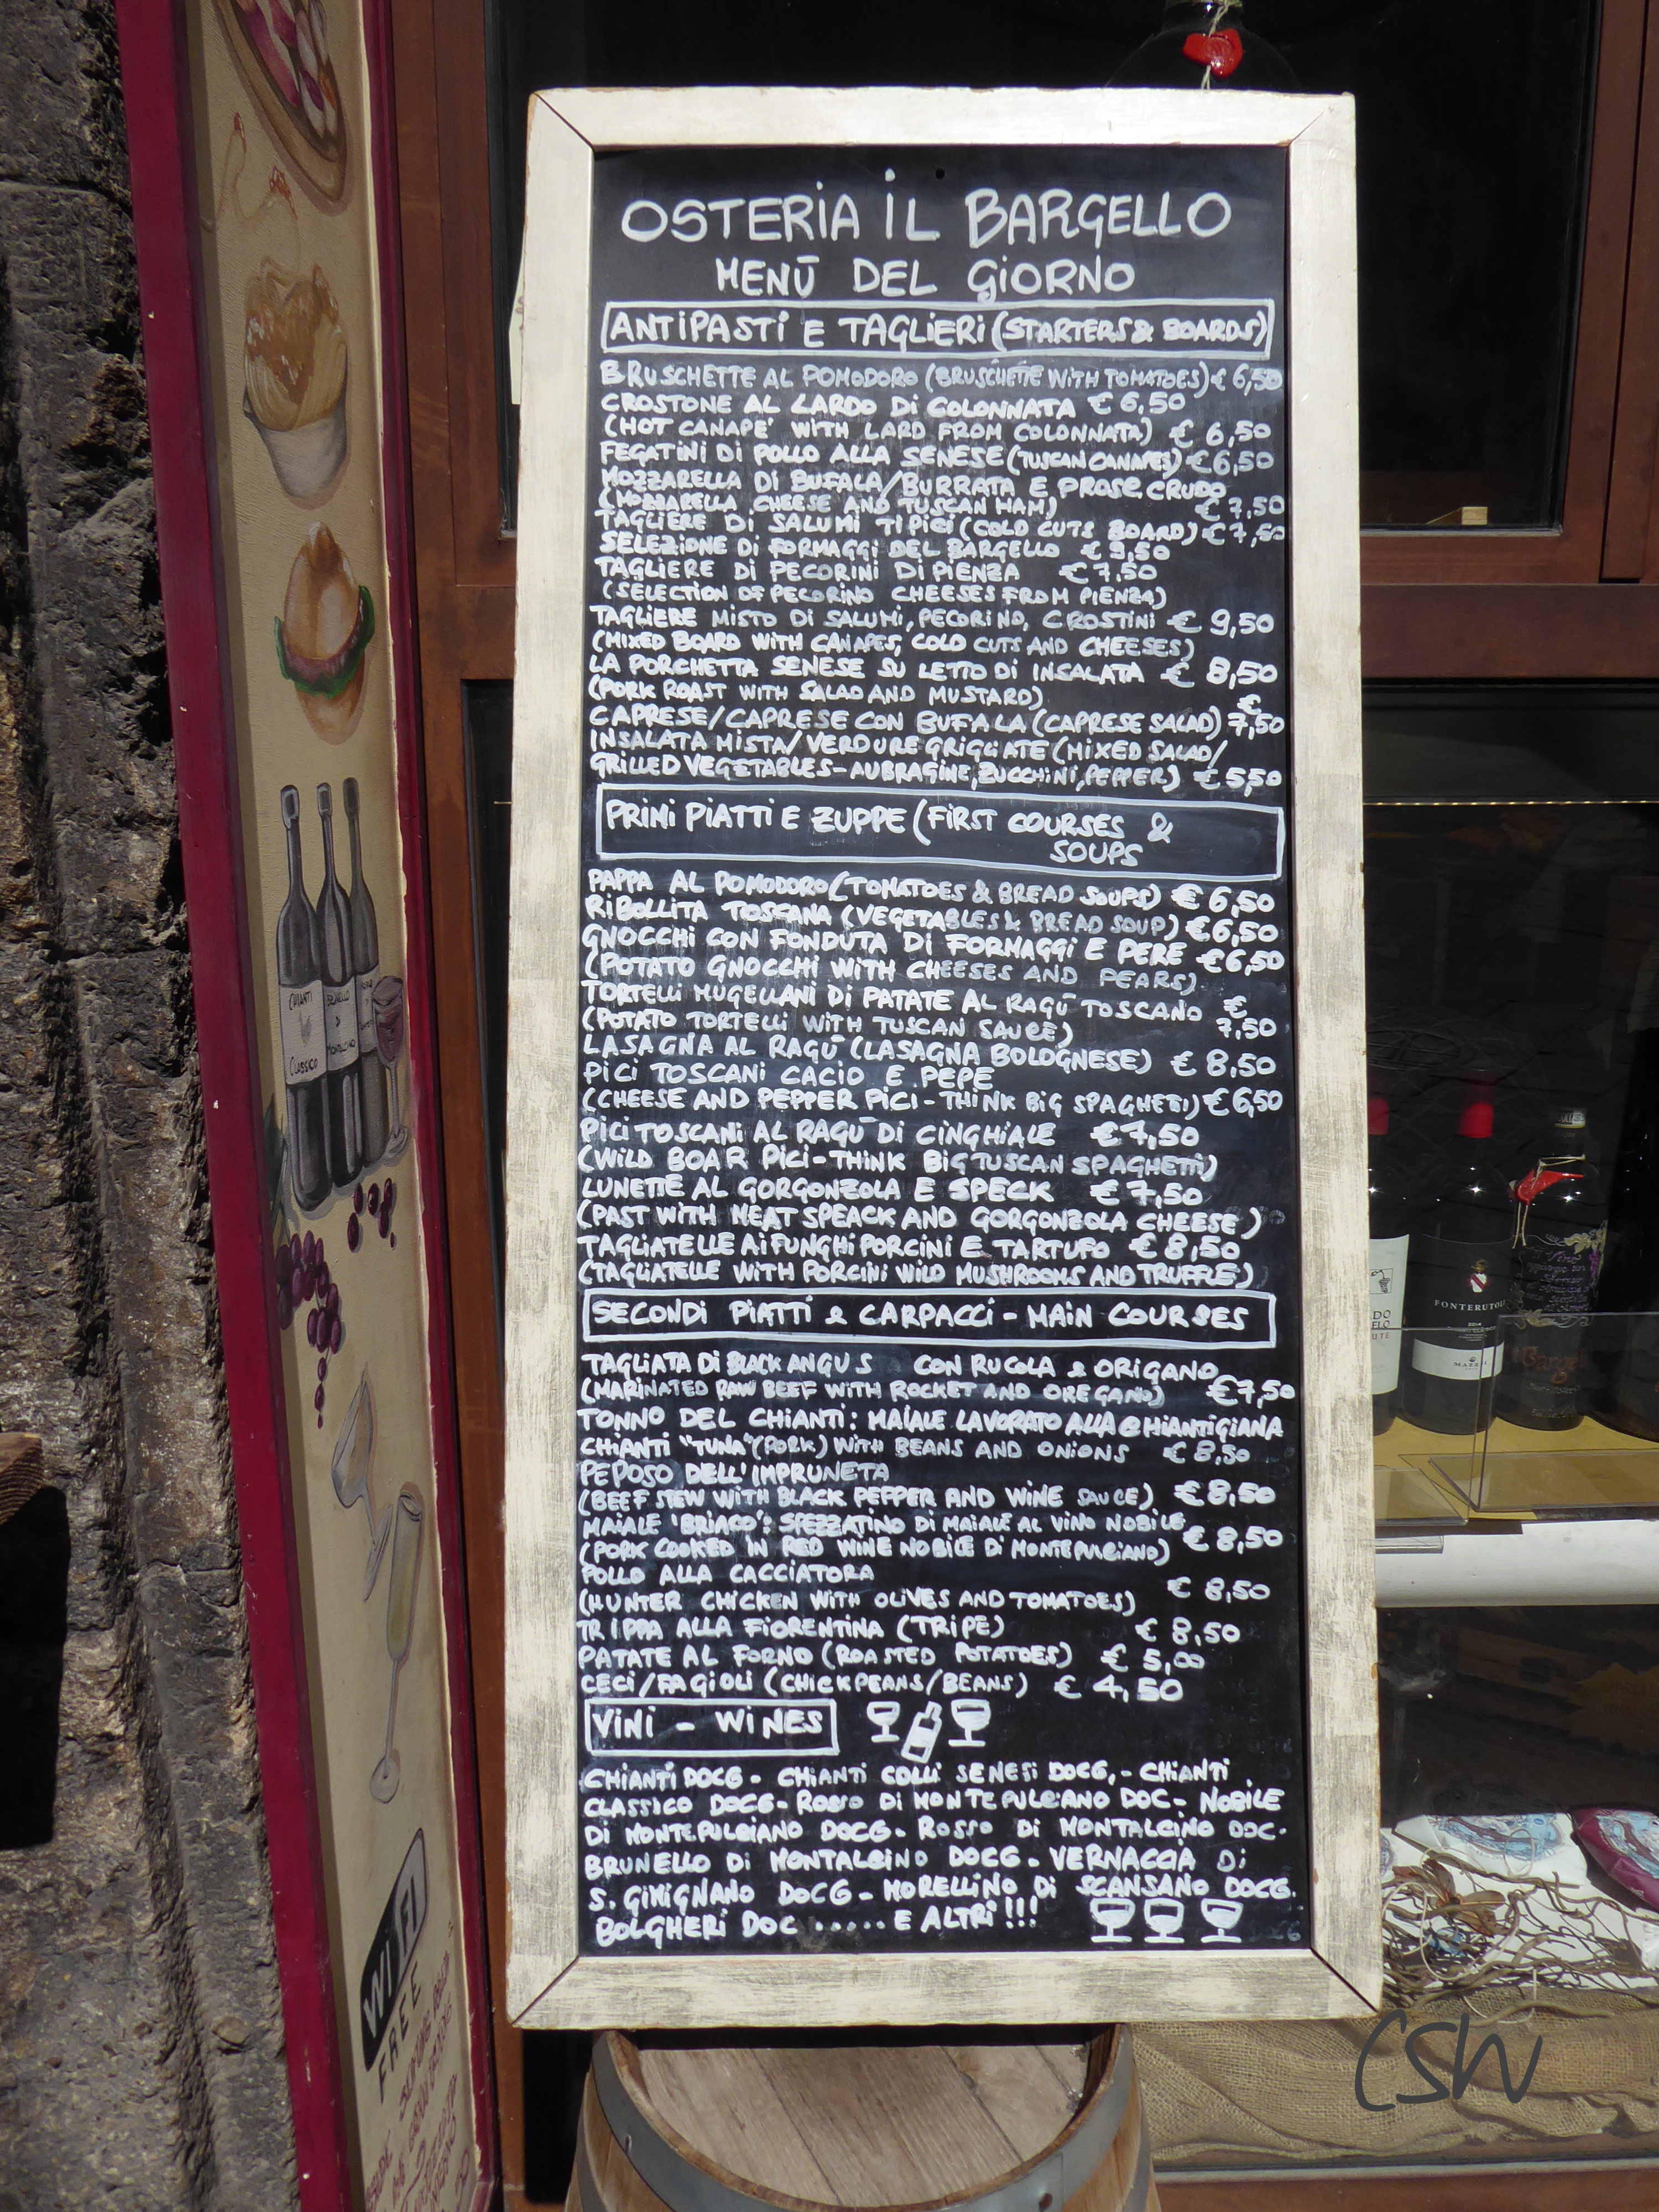 OSTERIA IL BARGELLO
MENŪ DEL GIORNO
ANTIPASTI E TAGLIERI (STARTERS & BOARDS)
BRUSCHETTE AL POMODORO (BRUSCHETTE WITH TOMATOES) € 6,50
CROSTONE AL LARDO DI COLONNATA € 6,50
(HOT CANAPE' WITH LARD FROM COLONNATA) € 6,50
FEGATINI DI POLLO ALLA SENESE (TUSCAN CANAPES) € 6,50
MOZZARELLA DI BUFALA/BURRATA E PROSC. CRUDO
(MOZZARELLA CHEESE AND TUSCAN HAM) € 7,50
TAGLIERE DI SALUMI TIPICI (COLD CUTS BOARD) € 7,50
SELEZIONE DI FORMAGGI DEL BARGELLO € 9,50
TAGLIERE DI PECORINI DI PIENZA € 7,50
(SELECTION OF PECORINO CHEESES FROM PIENZA)
TAGLIERE MISTO DI SALUMI, PECORINO, CROSTINI € 9,50
(MIXED BOARD WITH CANAPES, COLD CUTS AND CHEESES)
LA PORCHETTA SENESE SU LETTO DI INSALATA € 8,50
(PORK ROAST WITH SALAD AND MUSTARD)
CAPRESE/CAPRESE CON BUFALA (CAPRESE SALAD) € 7,50
INSALATA MISTA/VERDURE GRIGLIATE (MIXED SALAD/
GRILLED VEGETABLES-AUBRAGINE, ZUCCHINI, PEPPER) € 5,50
PRIMI PIATTI E ZUPPE (FIRST COURSES &
SOUPS
PAPPA AL POMODORO (TOMATOES & BREAD SOUPS) € 6,50
RIBOLLITA TOSCANA (VEGETABLES & BREAD SOUP) € 6,50
GNOCCHI CON FONDUTA DI FORMAGGI E PERE € 6,50
(POTATO GNOCCHI WITH CHEESES AND PEARS)
TORTELLI MUGELLANI DI PATATE AL RAGŪ TOSCANO €
(POTATO TORTELLI WITH TUSCAN SAUCE) 7,50
LASAGNA AL RAGŪ (LASAGNA BOLOGNESE) € 8,50
PICI TOSCANI CACIO E PEPE
(CHEESE AND PEPPER PICI - THINK BIG SPAGHETTI) € 6,50
PICI TOSCANI AL RAGŪ DI CINGHIALE € 7,50
(WILD BOAR PICI - THINK BIG TUSCAN SPAGHETTI)
LUNETTE AL GORGONZOLA E SPECK € 7,50
(PAST WITH MEAT SPEACK AND GORGONZOLA CHEESE)
TAGLIATELLE AI FUNGHI PORCINI E TARTUFO € 8,50
(TAGLIATELLE WITH PORCINI WILD MUSHROOMS AND TRUFFLE)
SECONDI PIATTI & CARPACCI - MAIN COURSES
TAGLIATA DI BLACK ANGUS CON RUCOLA & ORIGANO
(MARINATED RAW BEEF WITH ROCKET AND OREGANO) € 7,50
TONNO DEL CHIANTI: MAIALE LAVORATO ALLA CHIANTIGIANA
CHIANTI "TUNA" (PORK) WITH BEANS AND ONIONS € 8,50
PEPOSO DELL'IMPRUNETA
(BEEF STEW WITH BLACK PEPPER AND WINE SAUCE) € 8,50
MAIALE 'BRIACO': SPEZZATINO DI MAIALE AL VINO NOBILE
(PORK COOKED IN RED WINE NOBILE DI MONTEPULCIANO) € 8,50
POLLO ALLA CACCIATORA
(HUNTER CHICKEN WITH OLIVES AND TOMATOES) € 8,50
TRIPPA ALLA FIORENTINA (TRIPE) € 8,50
PATATE AL FORNO (ROASTED POTATOES) € 5,00
CECI/FAGIOLI (CHICKPEANS/BEANS) € 4,50
VINI - WINES
CHIANTI DOCG - CHIANTI COLLI SENESI DOCG, - CHIANTI
CLASSICO DOCG - ROSSO DI MONTEPULCIANO DOC - NOBILE
DI MONTEPULCIANO DOCG - ROSSO DI MONTALCINO DOC -
BRUNELLO DI MONTALCINO DOCG - VERNACCIA DI
S. GIMIGNANO DOCG - MORELLINO DI SCANSANO DOCG.
BOLGHERI DOC ..... E ALTRI!!!
CHIANTI
CLASSICO
BRUNELLO
DI
MONTALCINO
WiFi
FREE
FONTERUTOLI
MAZZEI
CSW